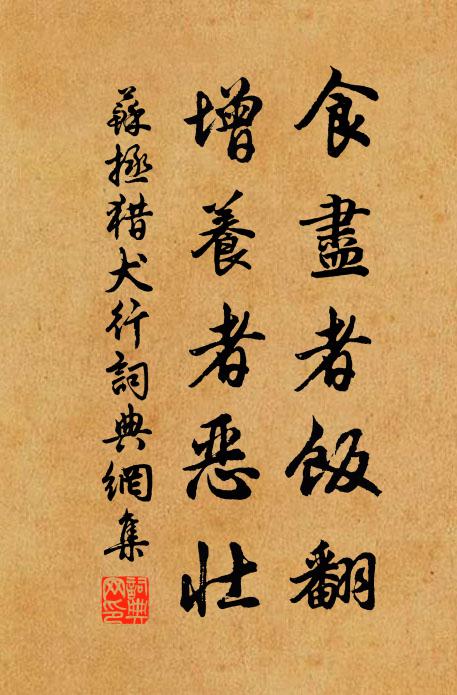 食盡者飯翻
增養者惡壯
蘇拯猎犬行詞典網集
詞典網印